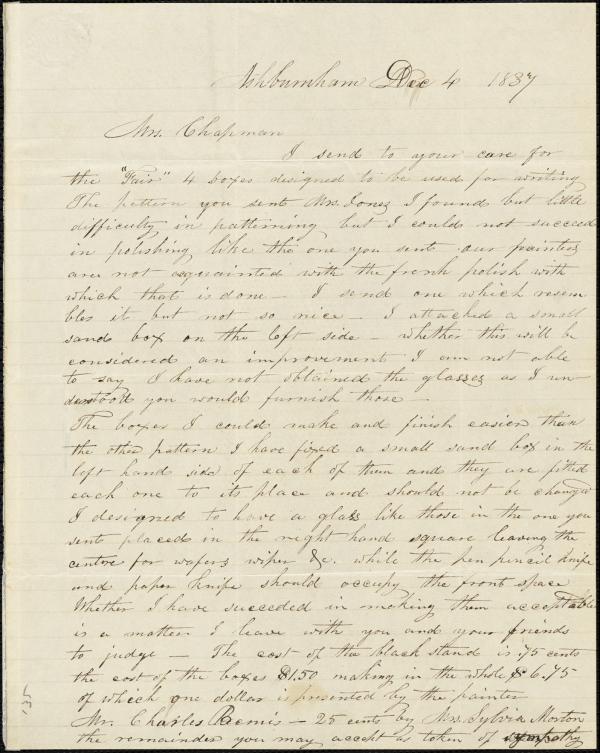 Ashburnham Dec 4 1837
Mrs. Chapman
I send to your care for
the "Fair" 4 boxes designed to be used for writing
The pattern you sent Mrs. Jones I found but little
difficulty in patterning but I could not succeed
in polishing like the one you sent our painters
are not acquainted with the frenk polish with
which that is done — I send one which resem
bles it but not so nice — I attached a small
sand box on the left side — whether this will be
considered an improvement I am not able
to say I have not obtained the glasses as I un-
derstood you would furnish those —
The boxes I could make and finish easier than
the other pattern I have fixed a small sand box in the
left hand side of each of them and they are fitted
each one to its place and should not be changed
I designed to have a glass like those in the one you
sent placed in the right hand square leaving the
centre for wafers wiper &c. while the pen pencil knife
and paper knife should occupy the front space
Whether I have succeded in making them acceptable
is a matter I leave with you and your friends
to judge — The cost of the black stand is .75 cents
the cost of the boxes $1.50 making in the whole $6.75
of which one dollar is presented by the painter
Mr. Charles Bemis — 25 cents by Mrs. Sylvia Morton
the remainder you may accept as token of sympathy